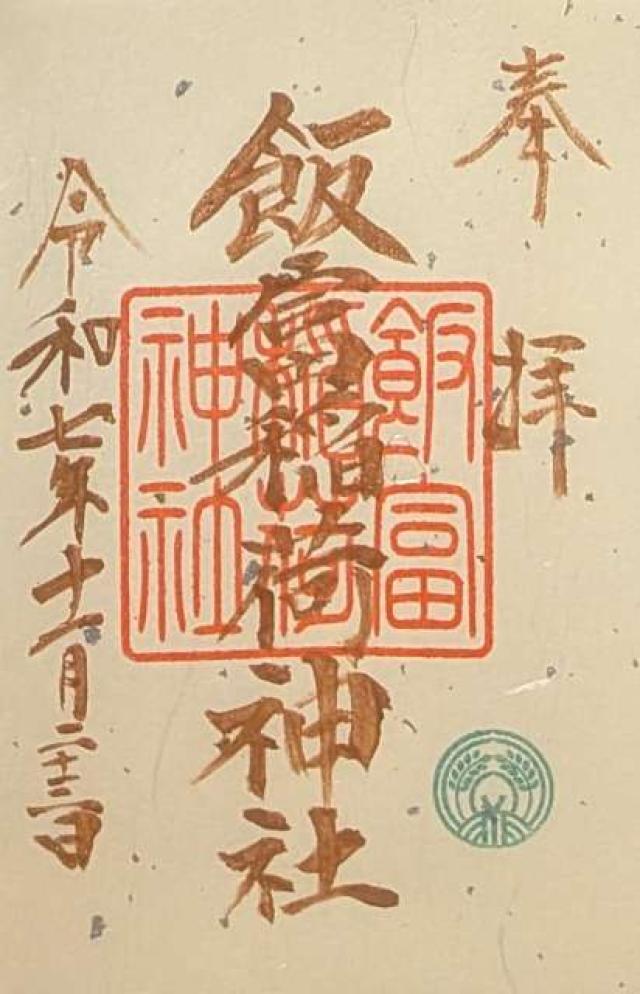 奉拝
飯富稲荷神社
令和七年十一月二十三日
飯富
稲荷
神社